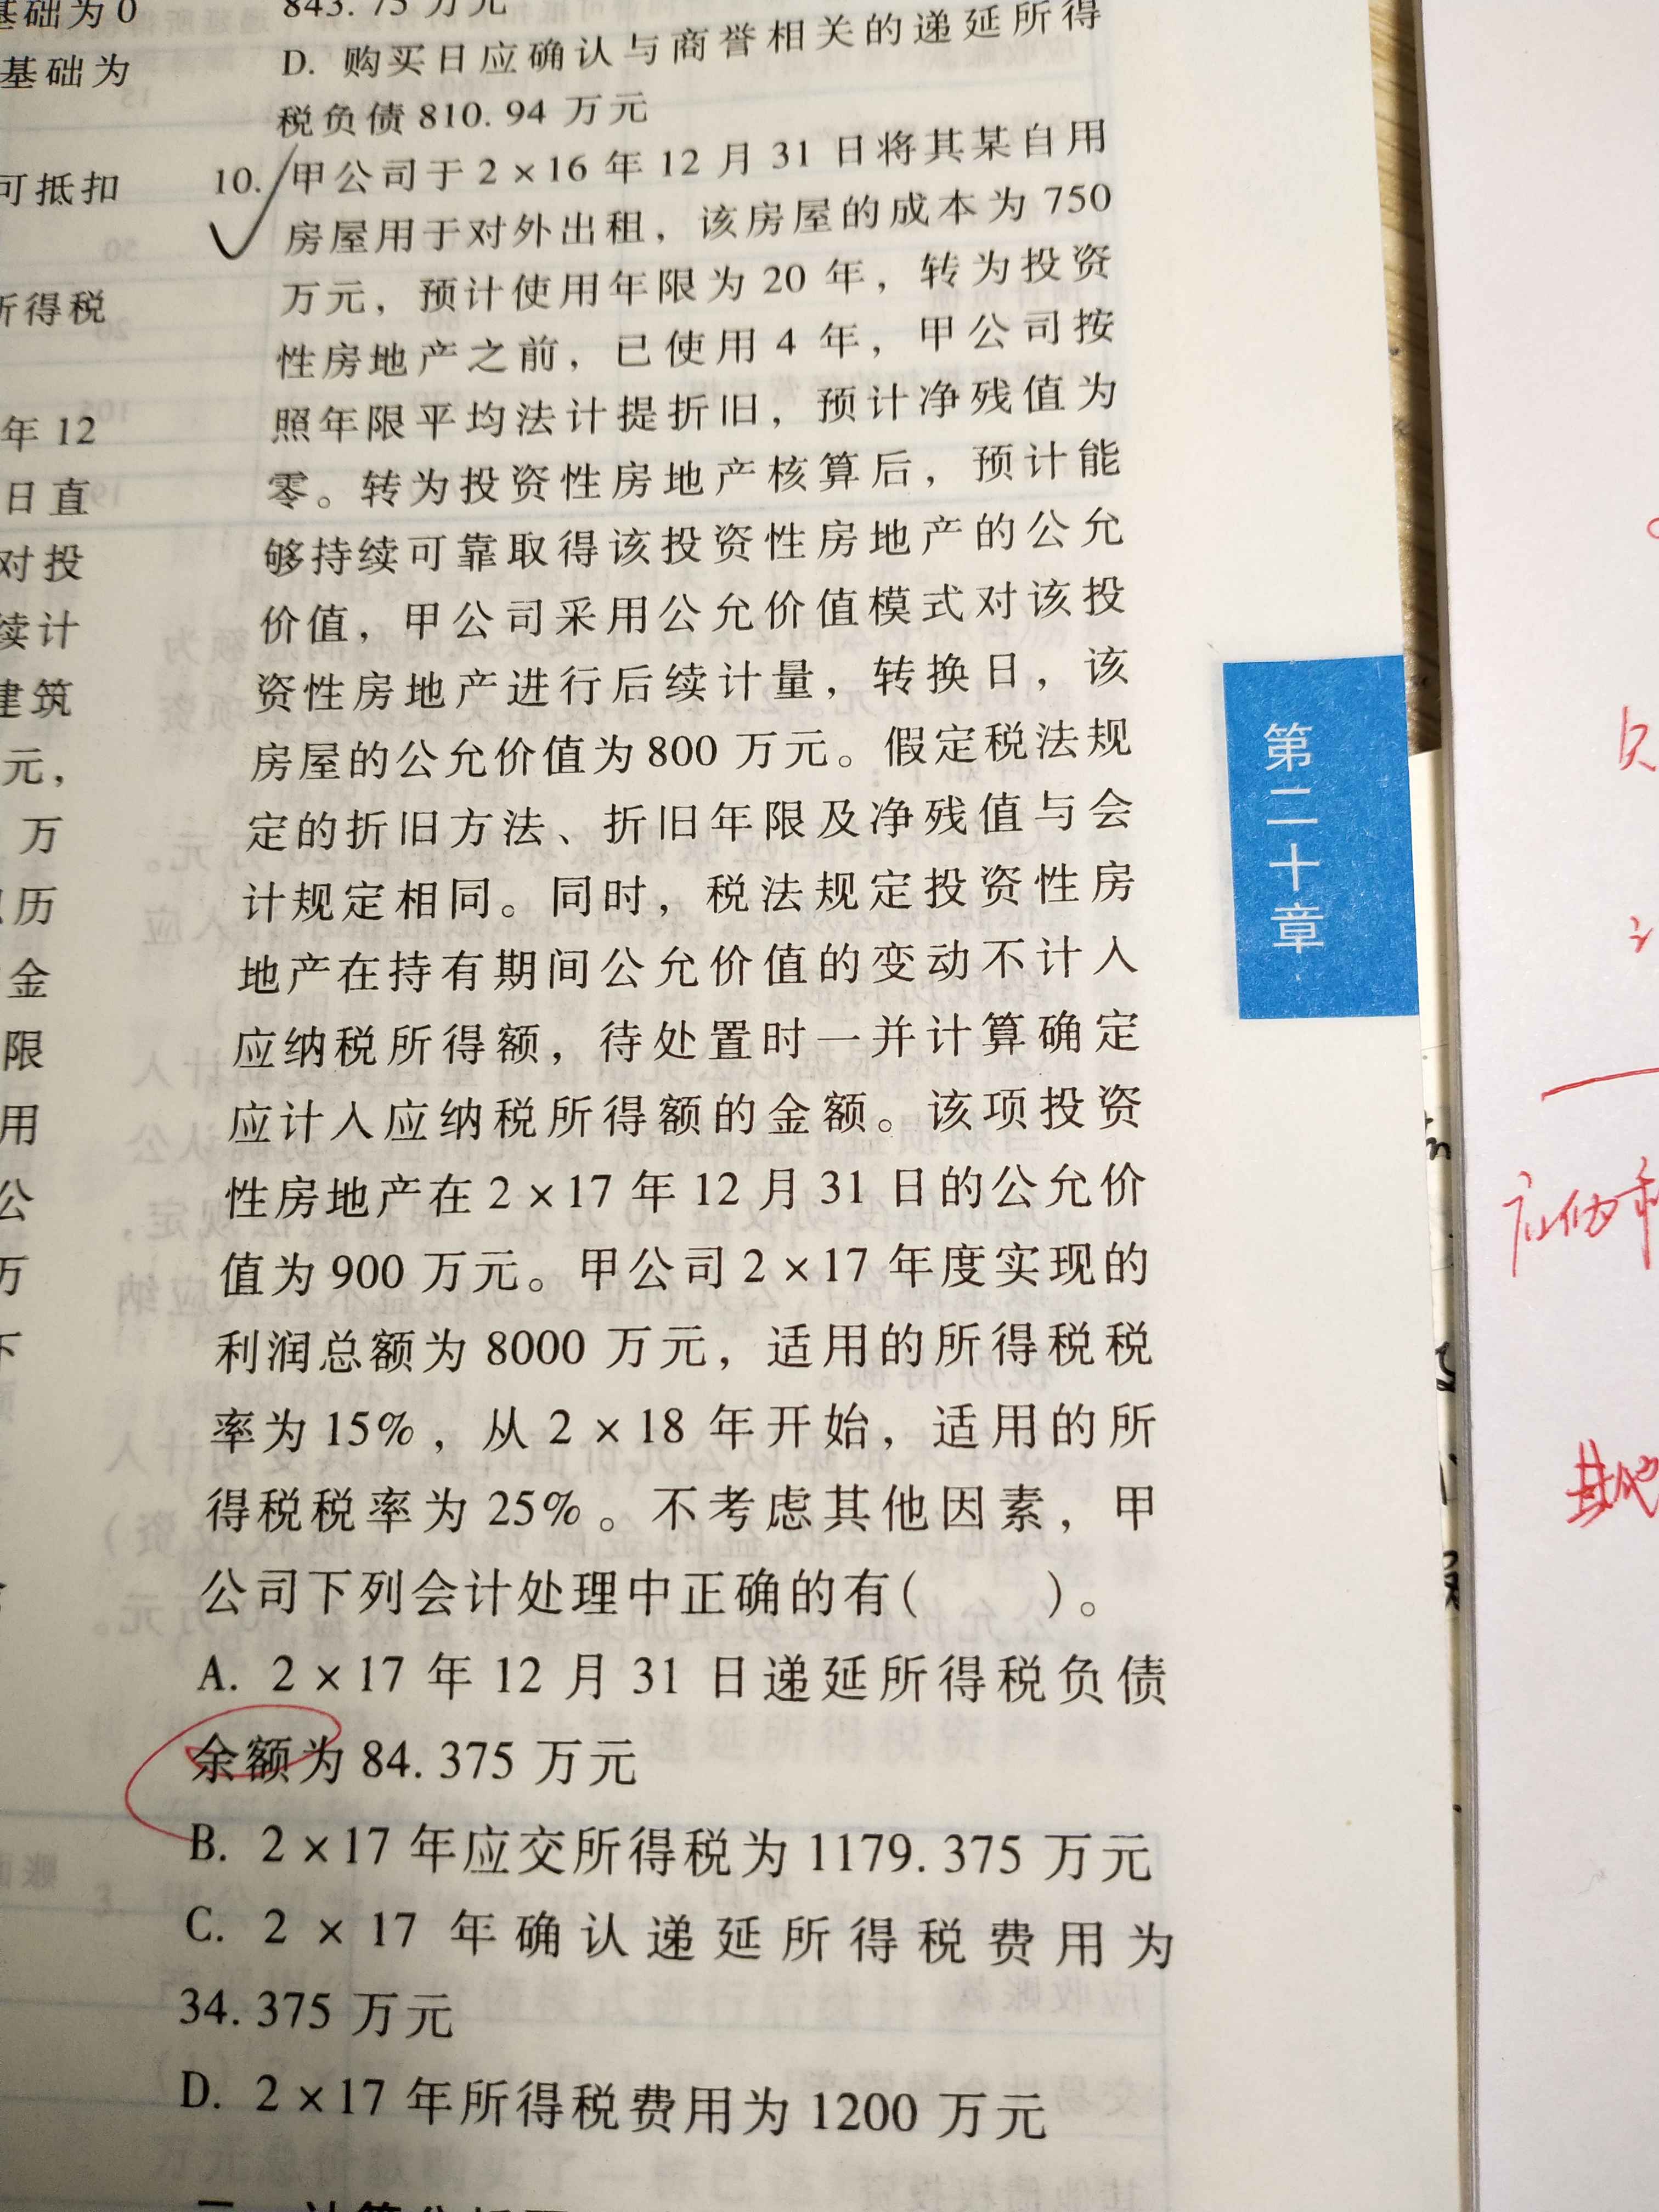 基础为0
基础为
可抵扣
所得税
年12
日直
对投
续计
建筑
元，
万
历
金
限
用
公
万
843.75万元
D. 购买日应确认与商誉相关的递延所得
税负债810.94万元
10. 甲公司于2×16年12月31日将其某自用
房屋用于对外出租，该房屋的成本为750
万元，预计使用年限为20年，转为投资
性房地产之前，已使用4年，甲公司按
照年限平均法计提折旧，预计净残值为
零。转为投资性房地产核算后，预计能
够持续可靠取得该投资性房地产的公允
价值，甲公司采用公允价值模式对该投
资性房地产进行后续计量，转换日，该
房屋的公允价值为800万元。假定税法规
定的折旧方法、折旧年限及净残值与会
计规定相同。同时，税法规定投资性房
地产在持有期间公允价值的变动不计入
应纳税所得额，待处置时一并计算确定
应计入应纳税所得额的金额。该项投资
性房地产在2×17年12月31日的公允价
值为900万元。甲公司2×17年度实现的
利润总额为8000万元，适用的所得税税
率为15%，从2×18年开始，适用的所
得税税率为25%。不考虑其他因素，甲
公司下列会计处理中正确的有(　　)。
A. 2×17年12月31日递延所得税负债
余额为84.375万元
B. 2×17年应交所得税为1179.375万元
C. 2×17年确认递延所得税费用为
34.375万元
D. 2×17年所得税费用为1200万元
第二十章